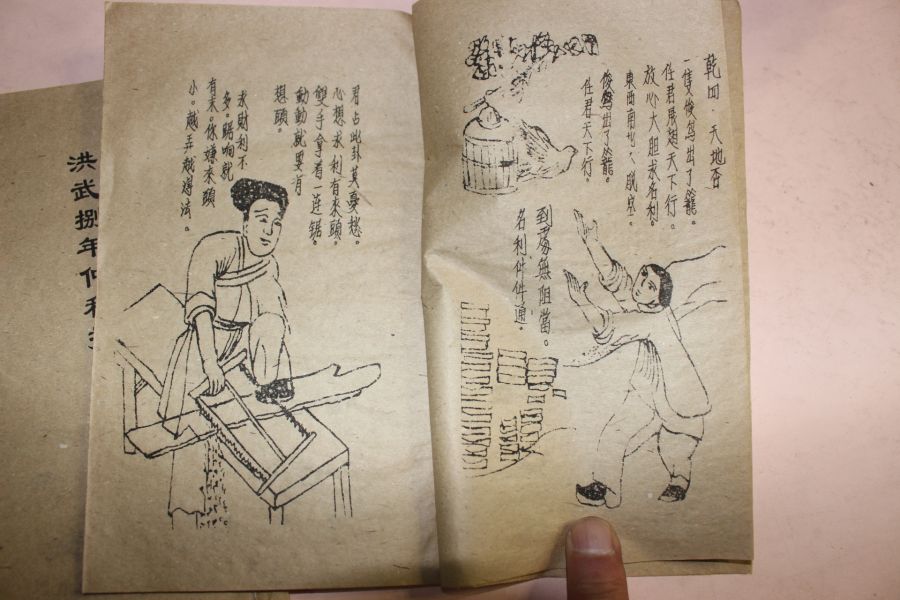 乾四·天地否
一隻俊鸟出了籠。
任君展翅天下行。
放心大胆求名利。
東西南 脱空。
俊鸟出了籠。
任君天下行。
到處無阻當。
名利件件通。
君占此卦莫憂愁。
心想求利有來頭。
雙手拿着一连锯。
動動就要有
想頭。
求財利不
多。 响就
有末。你嫌來頭
小。越弄越 法。
洪武捌年仲秋